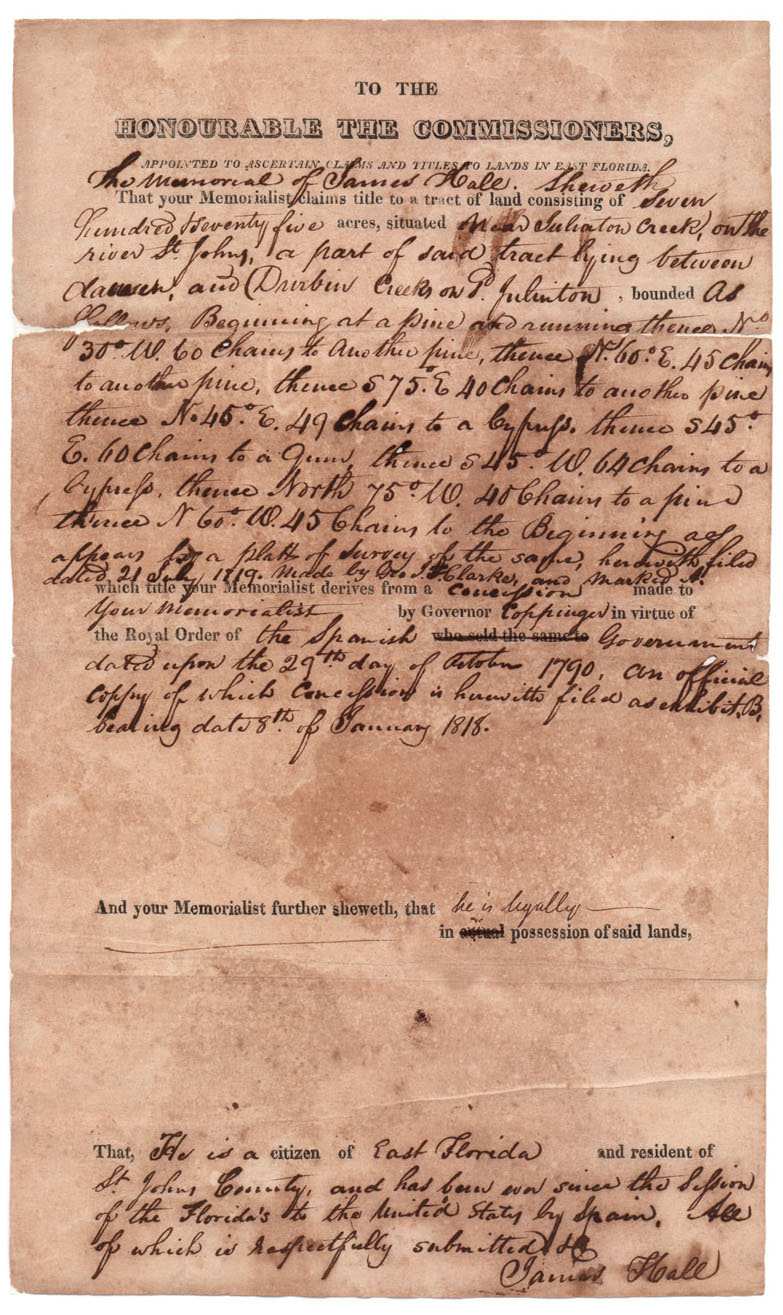 TO THE
HONOURABLE THE COMMISSIONERS,
APPOINTED TO ASCERTAIN CLAIMS AND TITLES TO LANDS IN EAST FLORIDA.
The Memorial of James Hall. Sheweth
That your Memorialist claims title to a tract of land consisting of Seven
hundred & seventy five acres, situated Near Juliaton Creek, on the
river St Johns, a part of said tract lying between
and Durbin Creeks on Pt. Julinton, bounded As
follows, Beginning at a pine and running thence No
30° W. 60 Chains to Another pine, thence N. 60° E. 45 Chains
to another pine, thence S 75° E 40 Chains to another pine
thence No 45° E. 49 Chains to a Cypress. thence S 45°
E. 60 Chains to a Gum, thence S 45° W. 64 Chains to a
Cypress, thence North 75° W. 40 Chains to a pine
thence N 60° W. 45 Chains to the Beginning as
appears by a platt of survey of the same, herewith filed
dated 21 July 1819. Made by Geo. J. F. Clarke, and marked A.
which title your Memorialist derives from a Concession made to
Your Memorialist by Governor Coppinger in virtue of
the Royal Order of the Spanish who sold the same to Government
dated upon the 29th day of October 1790, an official
coppy of which Concession is herewith filed as exhibit B,
bearing date 8th of January 1818.
And your Memorialist further sheweth, that he is legally
in actual possession of said lands,
That, He is a citizen of East Florida and resident of
St. Johns County, and has been ever since the Session
of the Florida's to the United States by Spain. All
of which is respectfully submitted &c
James Hall